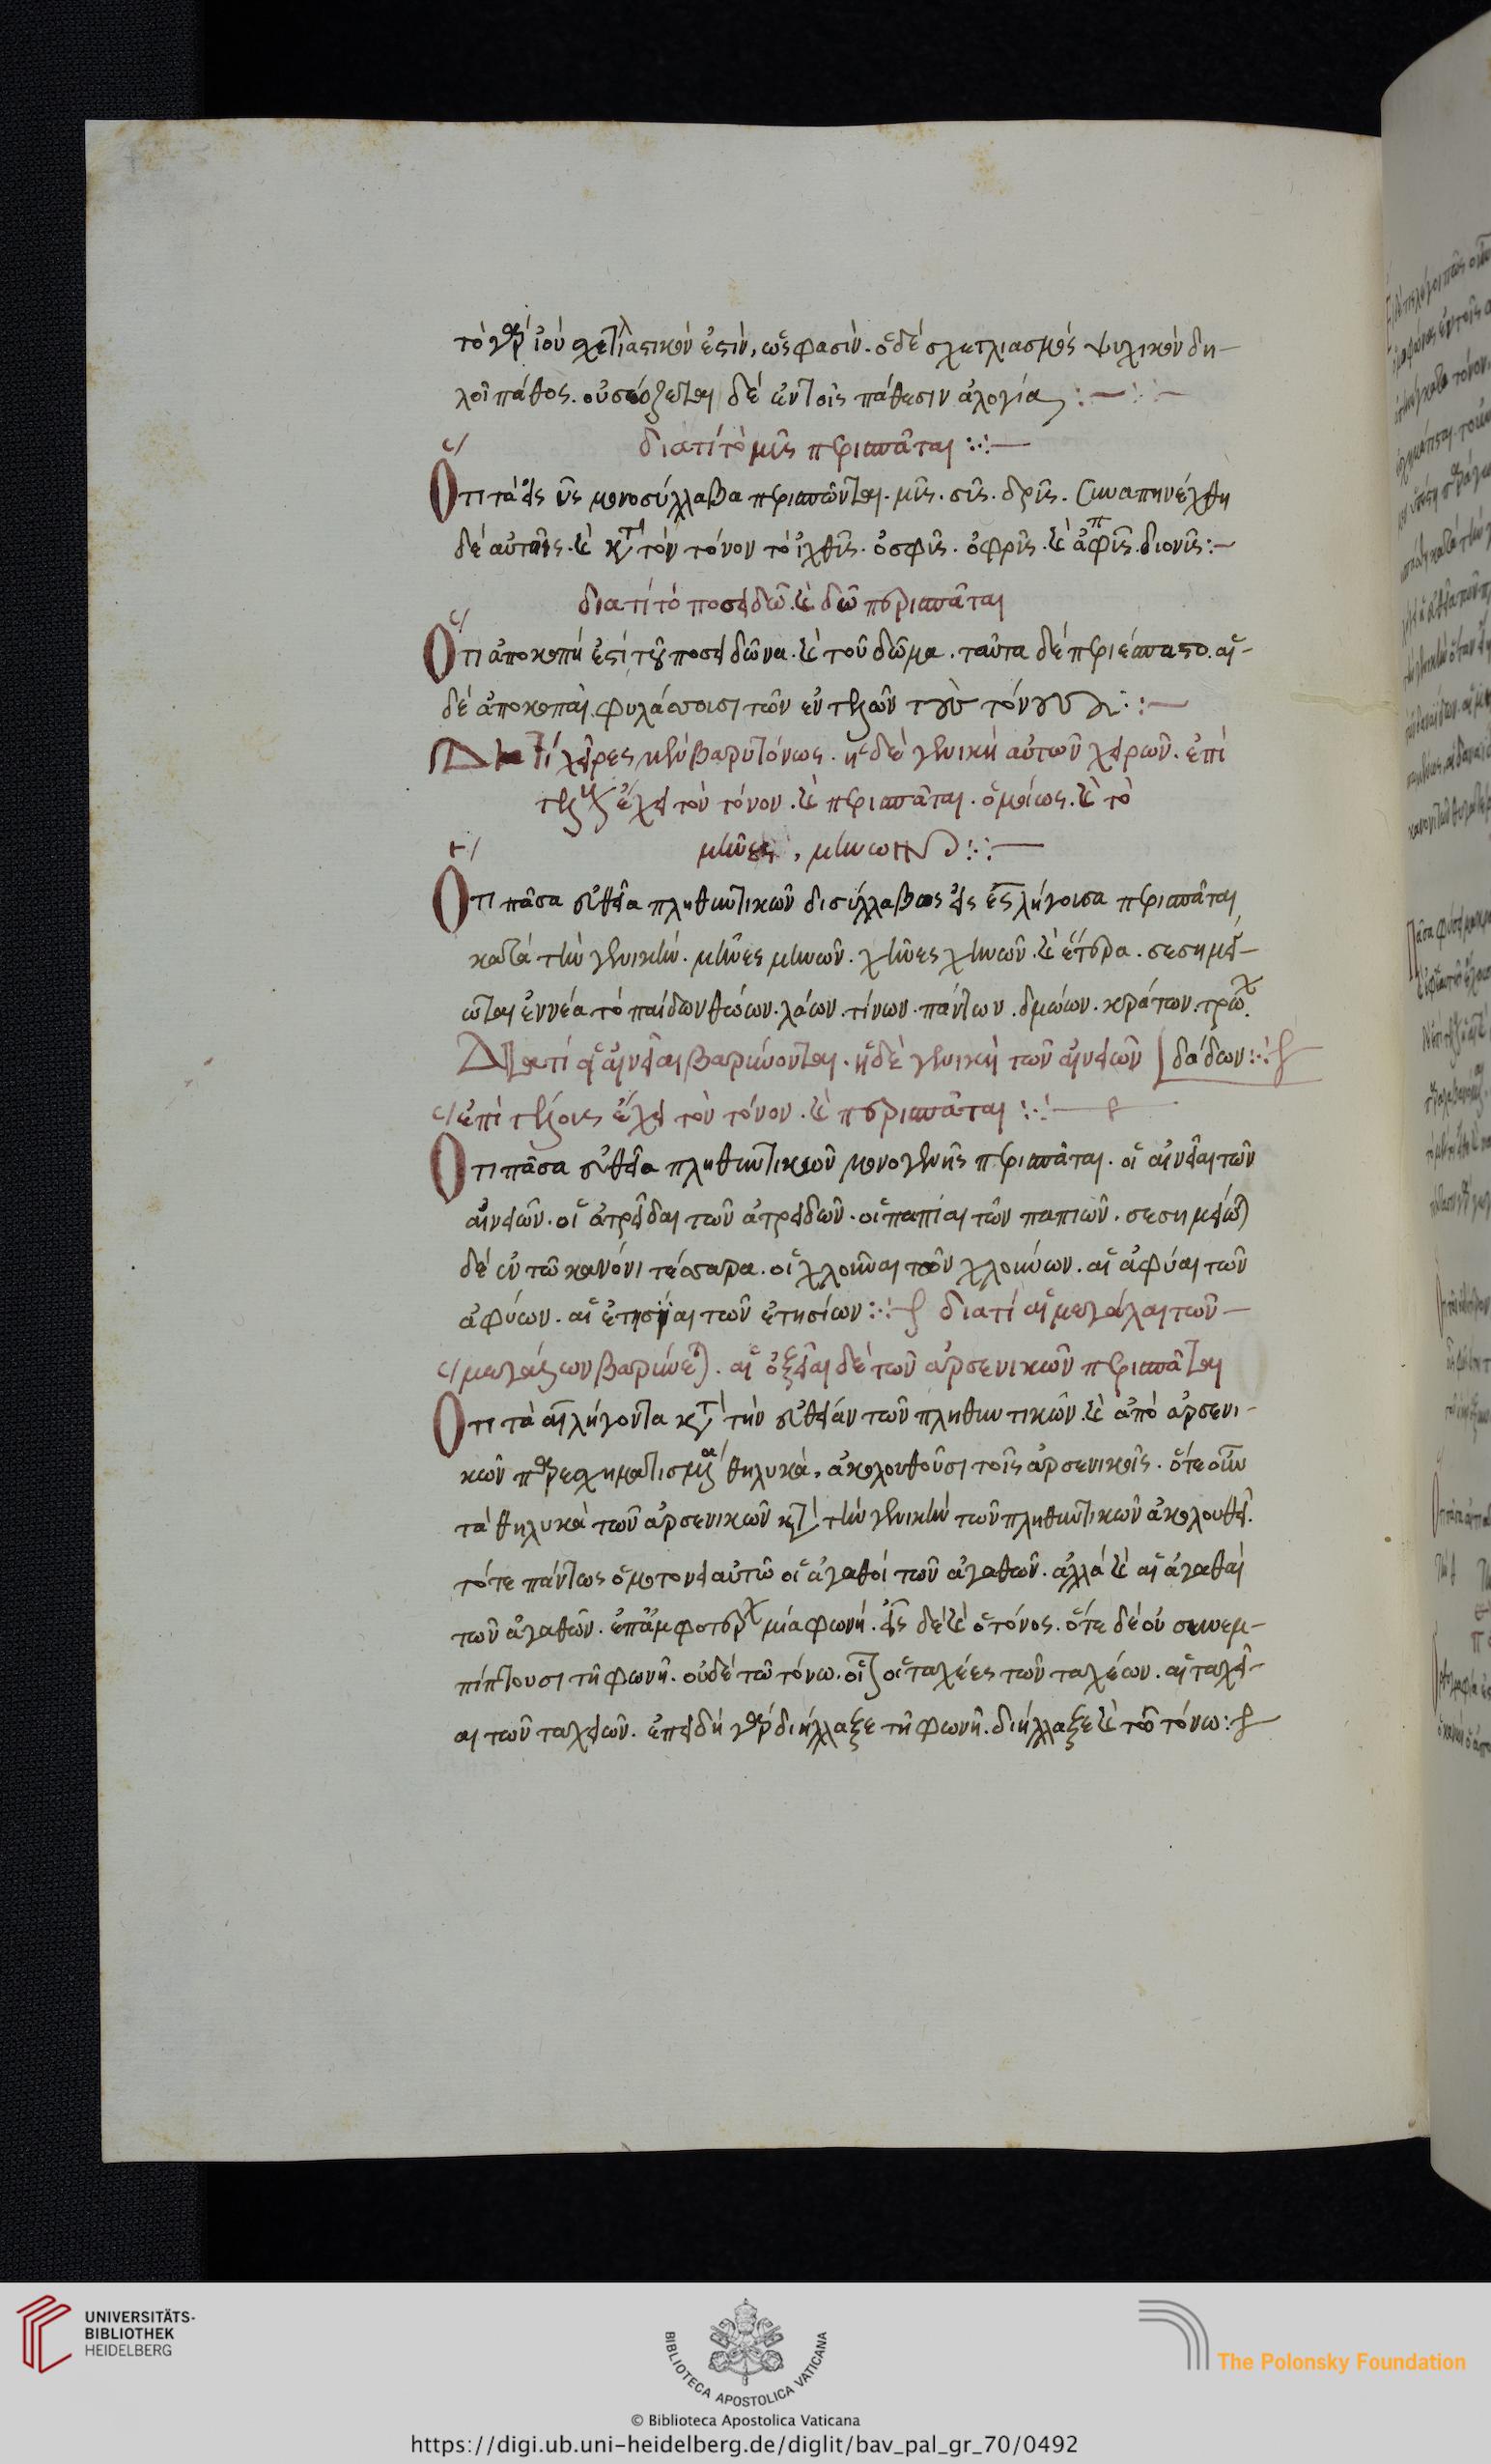 τὸ γὰρ ἰοὺ σχετλιαστικόν ἐστιν, ὥς φασιν. ὁ δὲ σχετλιασμὸς ψυχικὸν δη-
λοῖ πάθος. οὐ σώζεται δὲ ἐν τοῖς πάθεσιν ἀλογία :—
διατί τὸ μῦς περισπᾶται :—
Ὅτι τὰ εἰς ῦς μονοσύλλαβα περισπῶνται. μῦς. σῦς. δρῦς. συναπηνέχθη
δὲ αὐτοῖς. καὶ κατὰ τὸν τόνον τὸ ἰχθῦς. ὀσφῦς. ὀφρῦς. καὶ διονῦς :—
διατί τὸ ποσειδῶ. καὶ δῶ περισπᾶται
Ὅτι ἀποκοπή ἐστι τοῦ ποσειδῶνα. καὶ τοῦ δῶμα. ταῦτα δὲ περιέσπαστο. αἱ
δὲ ἀποκοπαὶ φυλάσσουσι τῶν ἐντελῶν τοὺς τόνους :—
Διατί χεῖρες μὲν βαρυτόνως. ἡ δὲ γενικὴ αὐτῶν χειρῶν. ἐπὶ
τέλους ἔχει τὸν τόνον. καὶ περισπᾶται. ὁμοίως. καὶ τὸ
μῆνες, μηνῶν :—
Ὅτι πᾶσα εὐθεῖα πληθυντικῶν δισύλλαβος εἰς ες λήγουσα περισπᾶται
κατὰ τὴν γενικήν. μῆνες μηνῶν. χῆνες χηνῶν. καὶ ἕτερα. σεσημεί-
ωται ἐννέα τὸ παίδων θώων. λάων. τίνων. πάντων. δμώων. κράτων. τρώων.
Διατί οἱ αἰνεῖαι βαρύνονται. ἡ δὲ γενικὴ τῶν αἰνειῶν | δάδων :—
ἐπὶ τέλους ἔχει τὸν τόνον. καὶ περισπᾶται :—
Ὅτι πᾶσα εὐθεῖα πληθυντικῶν μονογενὴς περισπᾶται. οἱ αἰνεῖαι τῶν
αἰνειῶν. οἱ ἀτρεῖδαι τῶν ἀτρειδῶν. οἱ παπίαι τῶν παπιῶν. σεσημείωται
δὲ ἐν τῶ κανόνι τέσσαρα. οἱ χλοῦναι τῶν χλούνων. αἱ ἀφύαι τῶν
ἀφύων. αἱ ἐτησίαι τῶν ἐτησίων :— διατί αἱ μεγάλαι τῶν
μεγάλων βαρύνεται. αἱ ὀξεῖαι δὲ τῶν ἀρσενικῶν περισπᾶται
Ὅτι τὰ αι λήγοντα κατὰ τὴν εὐθεῖαν τῶν πληθυντικῶν. καὶ ἀπὸ ἀρσενι-
κῶν παρεσχηματισμένα θηλυκὰ, ἀκολουθοῦσι τοῖς ἀρσενικοῖς. ὅτε οὖν
τὰ θηλυκὰ τῶν ἀρσενικῶν κατὰ τὴν γενικὴν τῶν πληθυντικῶν ἀκολουθεῖ.
τότε πάντως ὁμοτονεῖ αὐτῶ οἱ ἀγαθοί τῶν ἀγαθῶν. ἀλλὰ καὶ αἱ ἀγαθαὶ
τῶν ἀγαθῶν. ἐπ' ἀμφοτέρων μία φωνή. εἷς δὲ καὶ ὁ τόνος. ὅτε δὲ οὐ συνεμ-
πίπτουσι τῆ φωνῆ. οὐδὲ τῶ τόνω. οἷον οἱ ταχέες τῶν ταχέων. αἱ ταχεῖ-
αι τῶν ταχειῶν. ἐπειδὴ γὰρ διήλλαξε τῆ φωνῆ. διήλλαξε καὶ τῶ τόνω :—
UNIVERSITÄTS-
BIBLIOTHEK
HEIDELBERG
BIBLIOTECA APOSTOLICA VATICANA
The Polonsky Foundation
© Biblioteca Apostolica Vaticana
https://digi.ub.uni-heidelberg.de/diglit/bav_pal_gr_70/0492